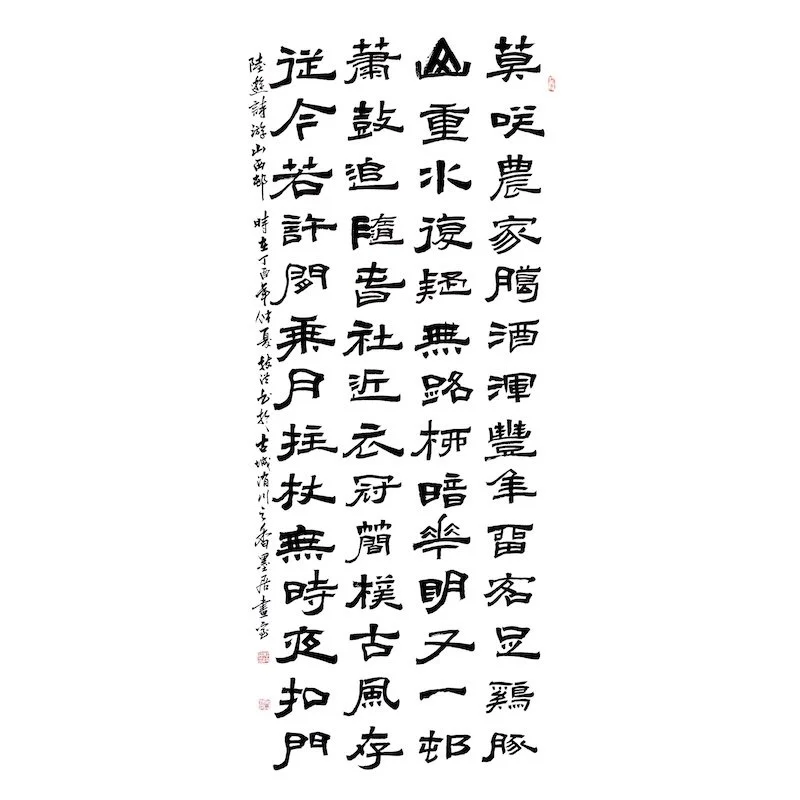 莫咲農家臈酒渾豐年畱客足鷄豚
山重水復疑無路柳暗華明又一邨
蕭鼓追隨春社近衣冠簡樸古風存
從今若許閑乘月拄杖無時夜扣門
陸遊詩游山西邨 時在丁酉年仲夏书於古城洧川之香墨居畫室